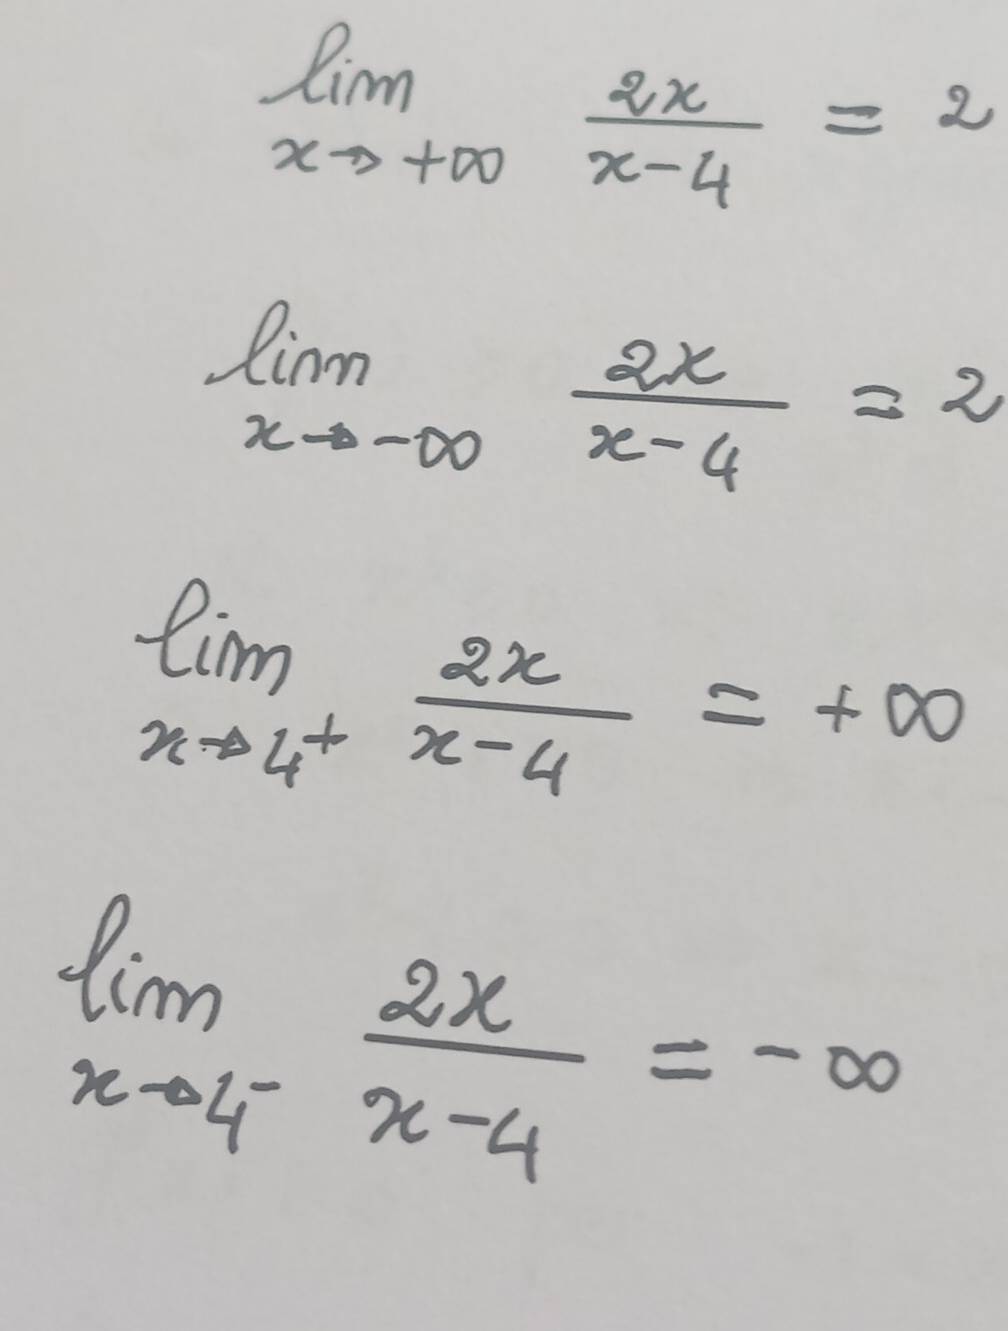 lim x→+∞ 2x/(x-4) = 2
lim x→-∞ 2x/(x-4) = 2
lim x→4⁺ 2x/(x-4) = +∞
lim x→4⁻ 2x/(x-4) = -∞